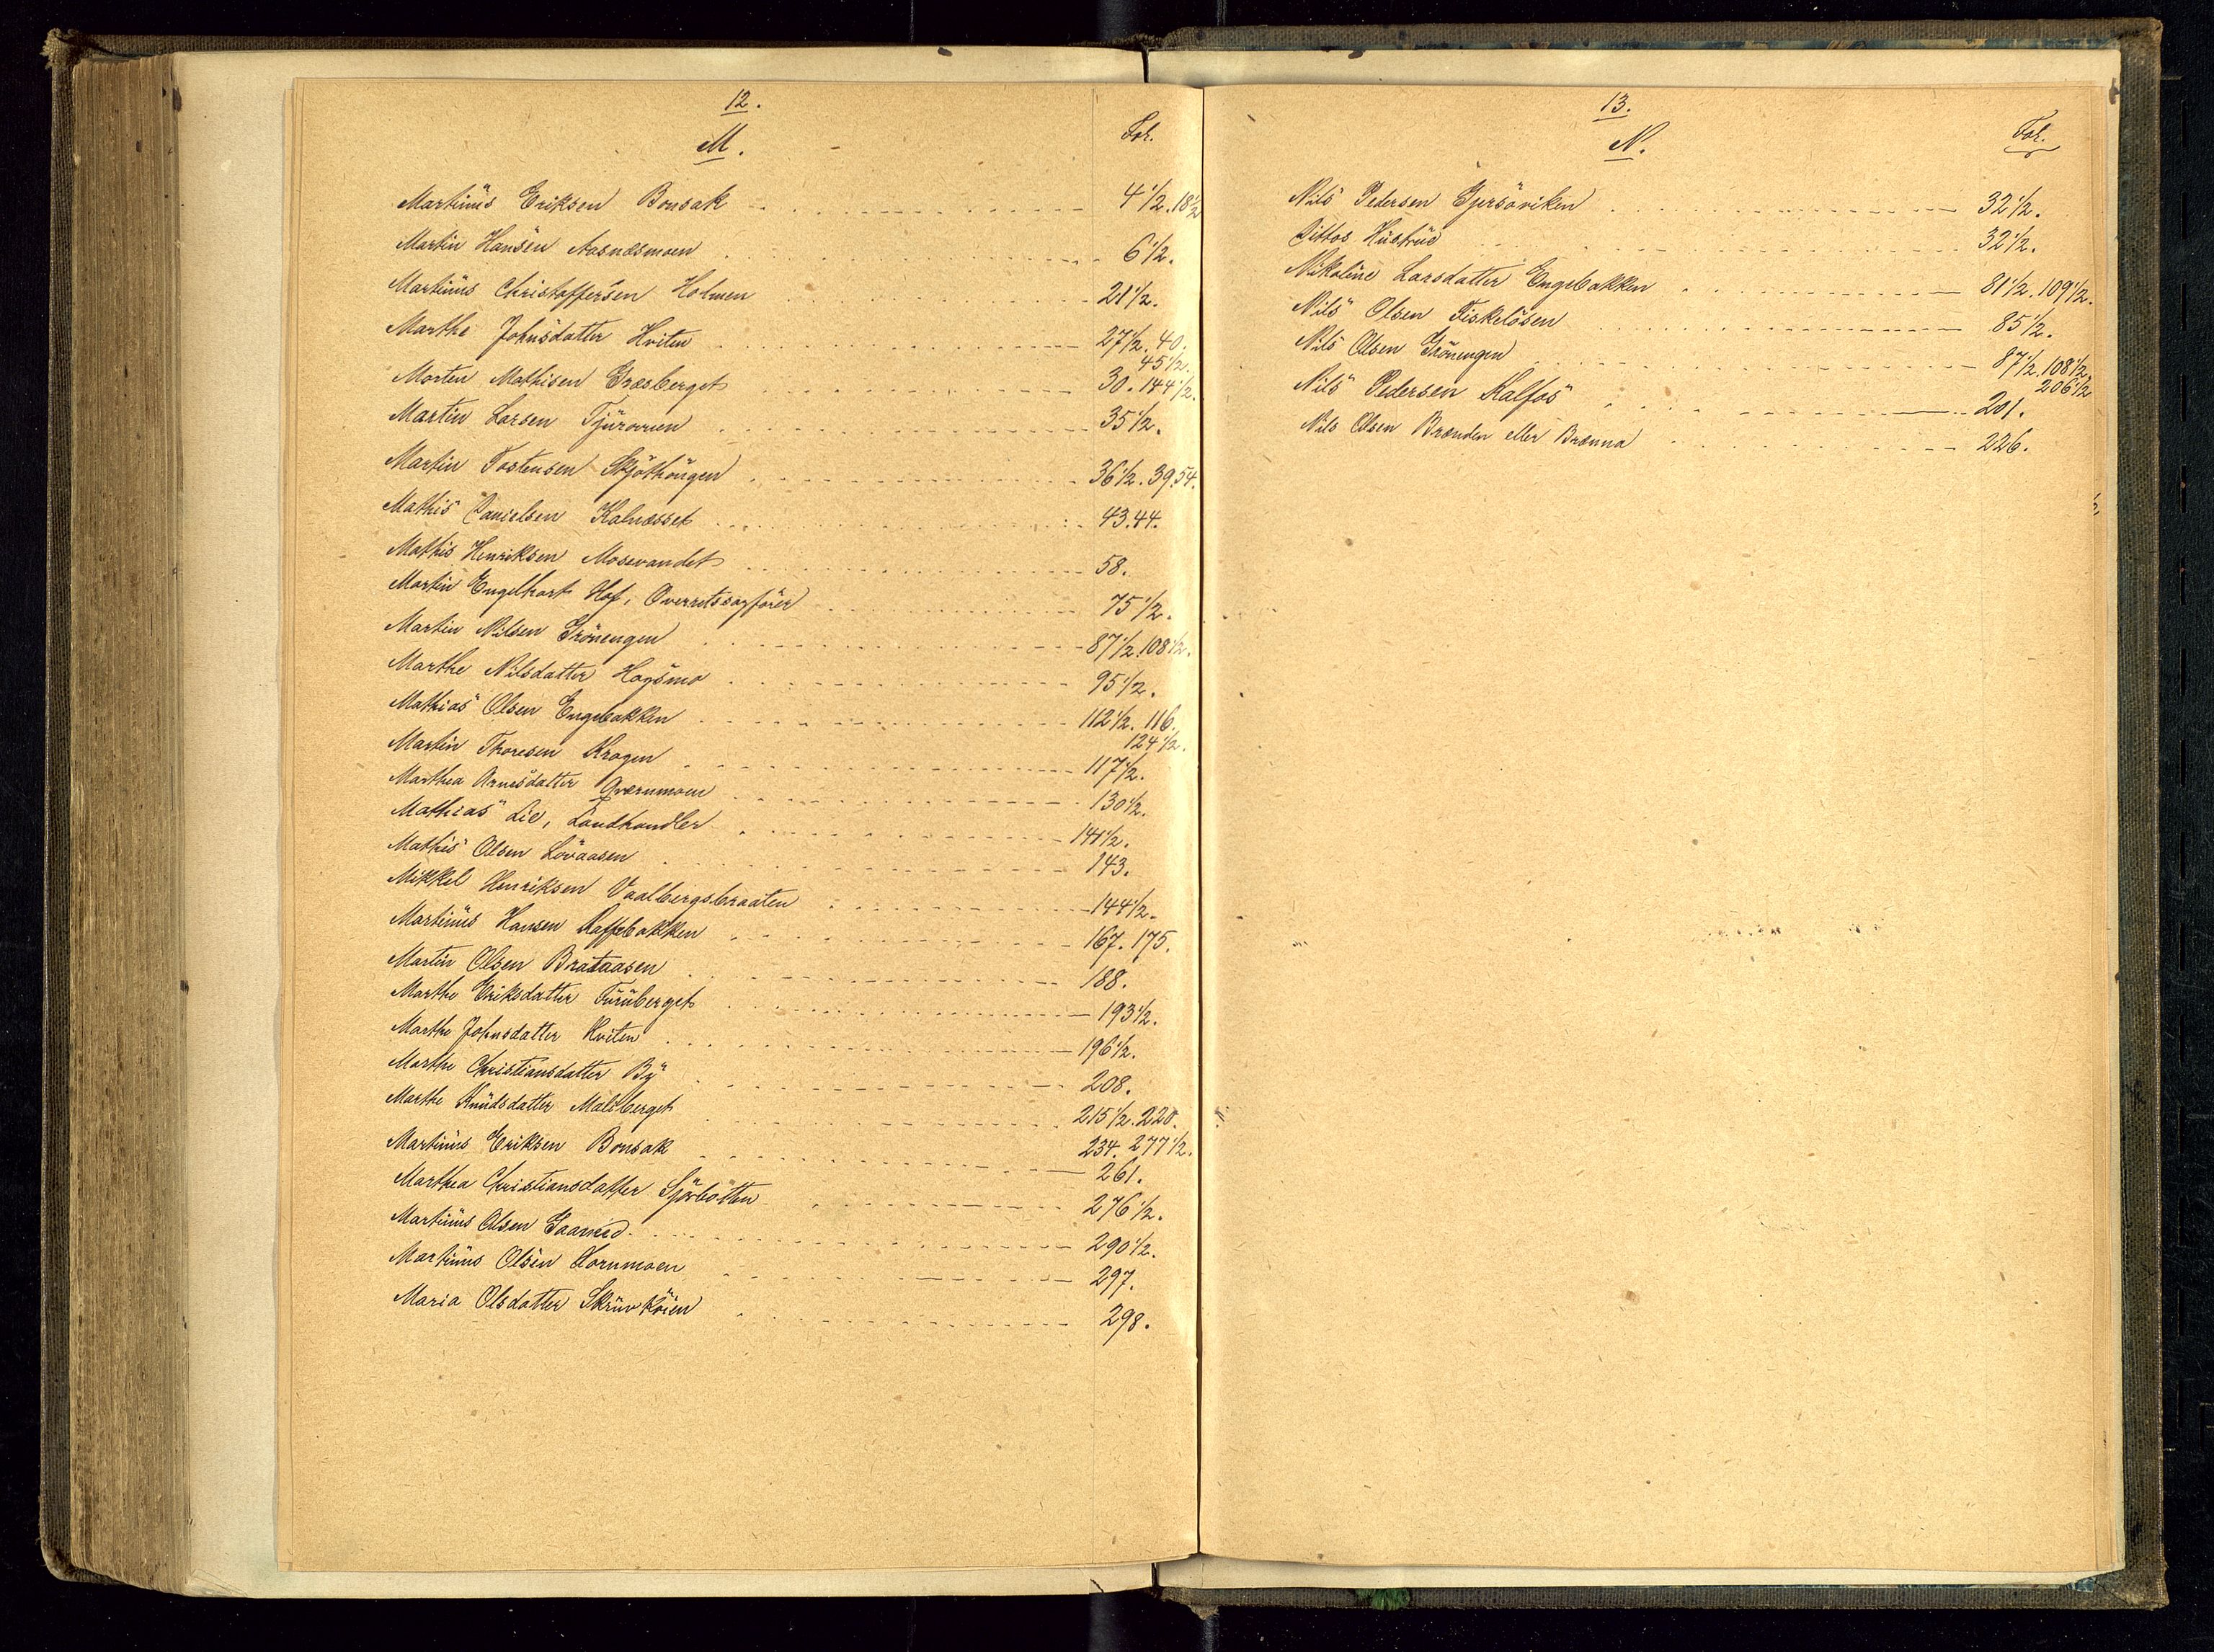 12.
M.
Fol.
Martinus Eriksen Bonsak 4 1/2. 18 1/2
Martin Hansen Aasnæsmoen 6 1/2.
Martinus Christoffersen Holmen 21 1/2.
Marthe Johnsdatter Hviten 27 1/2. 40.
45 1/2.
Morten Mathisen Græsberget 30. 144 1/2.
Martin Larsen 35 1/2.
Martin Tostensen Skjöthougen 36 1/2. 39. 54.
Mathis Danielsen Kalnæsset 43. 44.
Mathis Henriksen Mosevandet 58.
Martin Engelhart Hof, Overretssagförer 75 1/2.
Martin Nilsen Grönengen 87 1/2. 108 1/2.
Marthe Nilsdatter Hagsmo 95 1/2.
Mathias Olsen Engebakken 112 1/2. 116.
124 1/2.
Martin Thoresen Kragen 117 1/2.
Marthea Arnesdatter Qværnmoen 130 1/2.
Mathias Lie, Landhandler 141 1/2.
Mathis Olsen Lövaasen 143.
Mikkel Henriksen Vaalbergsbraaten 144 1/2.
Martinus Hansen Kaffebakken 167. 175.
Martin Olsen Brataasen 188.
Marthe Eriksdatter Furuberget 193 1/2.
Marthe Johnsdatter Hviten 196 1/2.
Marthe Christiansdatter By 208.
Marthe Knudsdatter Malsberget 215 1/2. 220.
234. 277 1/2.
Martinus Eriksen Bonsak 261.
Marthea Christiansdatter Sjöbotten 276 1/2.
Martinus Olsen 290 1/2.
Martinus Olsen Hornmoen 297.
Maria Olsdatter Skruvköien 298.
13.
N.
Fol.
Nils Pedersen Gjersöviken 32 1/2.
Dittos Hustrue 32 1/2.
Nikoline Larsdatter Engebakken 81 1/2. 109 1/2.
Nils Olsen Fiskelösen 85 1/2.
Nils Olsen Grönengen 87 1/2. 108 1/2.
206 1/2
Nils Pedersen Kalfos 201.
Nils Olsen Brænden eller Brænna 226.